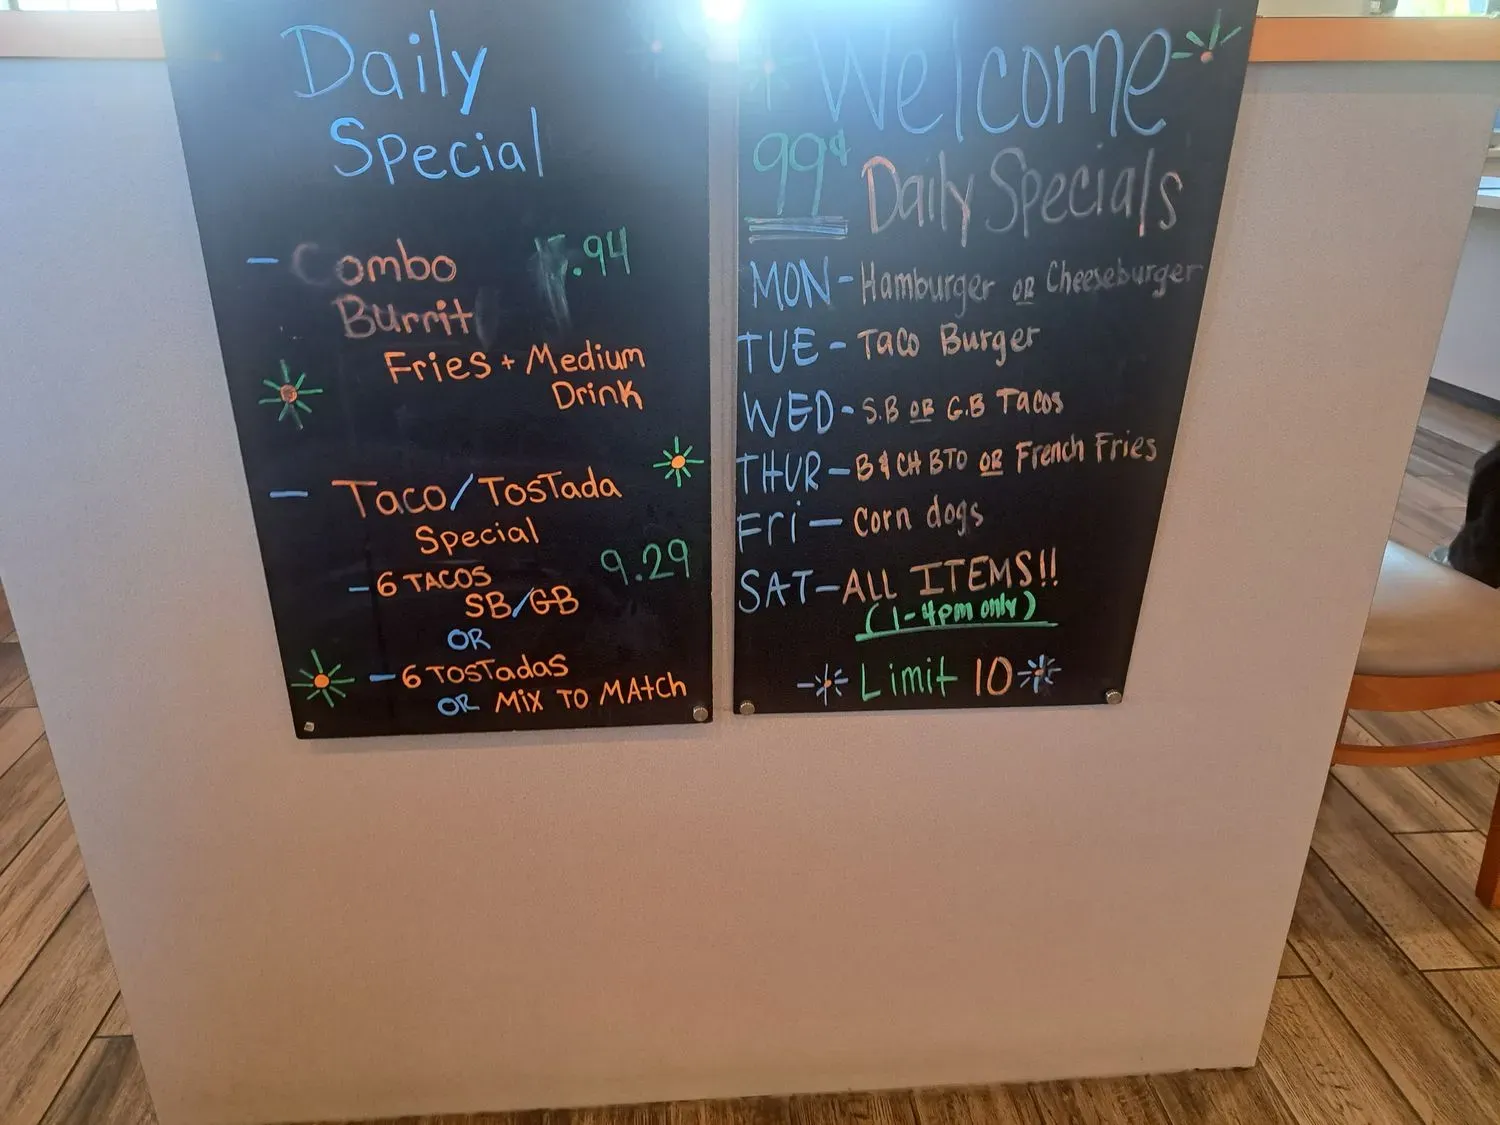 Daily
Special
- Combo
Burrit
Fries + Medium
Drink
- Taco/Tostada
Special 9.29
- 6 TACOS
SB/GB
OR
- 6 TOSTadas
OR MIX TO MAtCH
Welcome
99¢ Daily Specials
MON - Hamburger OR Cheeseburger
TUE - Taco Burger
WED - S.B OR G.B Tacos
THUR - B & CH BTO OR French Fries
FRi - Corn dogs
SAT - ALL ITEMS!!
(1-4pm only)
Limit 10